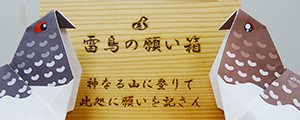 雷鳥の願い箱
神なる山に登りて
此処に願いを記さん